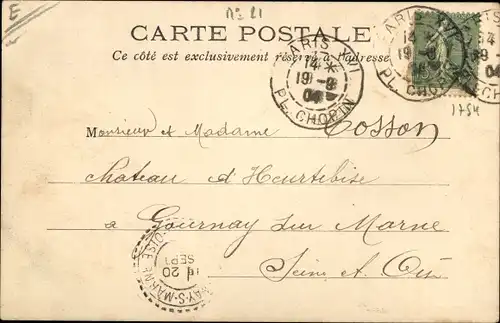 E
No 21
CARTE POSTALE
Ce côté est exclusivement réservé à l'adresse
PARIS XVI
14 *
19 -9
04
PL. CHOPIN
PARIS XVI
14
19 -9
04
PL. CHOPIN
1754
Monsieur et Madame Cosson
chateau d'Heurtebise
a Gournay sur Marne
Seine et Oise
20
SEPT
NAY-S-MARNE
OISE